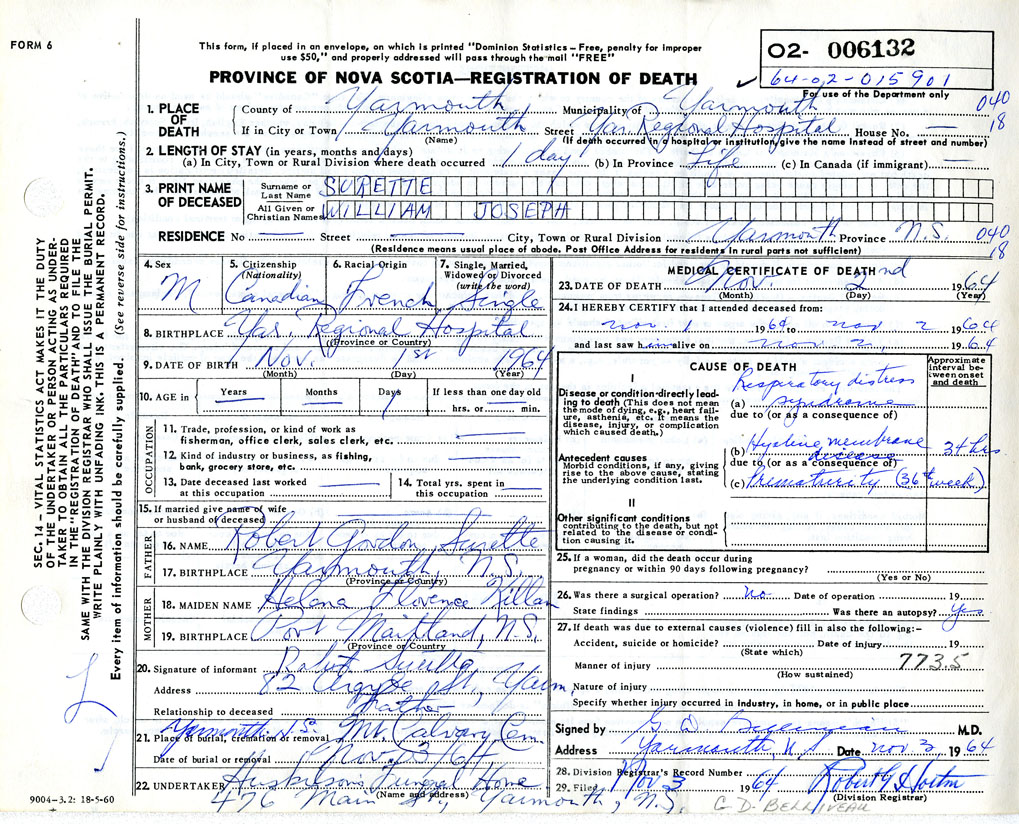 FORM 6
This form, if placed in an envelope, on which is printed "Dominion Statistics – Free, penalty for improper
use $50," and properly addressed will pass through the mail "FREE"
PROVINCE OF NOVA SCOTIA—REGISTRATION OF DEATH
02- 006132
64-02-015901
For use of the Department only
1. PLACE OF DEATH
County of Yarmouth Municipality of Yarmouth 040
If in City or Town Yarmouth Street Yar. Regional Hospital House No. — 18
(Name) (If death occurred in a hospital or institution, give the name instead of street and number)
2. LENGTH OF STAY (in years, months and days)
(a) In City, Town or Rural Division where death occurred 1 day (b) In Province Life (c) In Canada (if immigrant) —
3. PRINT NAME OF DECEASED
Surname or Last Name SURETTE
All Given or Christian Names WILLIAM JOSEPH
RESIDENCE No — Street — City, Town or Rural Division Yarmouth Province N.S. 040
(Residence means usual place of abode. Post Office Address for residents in rural parts not sufficient) 18
4. Sex M
5. Citizenship (Nationality) Canadian
6. Racial Origin French
7. Single, Married, Widowed or Divorced (write the word) Single
8. BIRTHPLACE Yar. Regional Hospital
(Province or Country)
9. DATE OF BIRTH Nov. 1st 1964
(Month) (Day) (Year)
10. AGE in Years — Months — Days 1 If less than one day old
hrs. or min.
OCCUPATION
11. Trade, profession, or kind of work as
fisherman, office clerk, sales clerk, etc. —
12. Kind of industry or business, as fishing,
bank, grocery store, etc. —
13. Date deceased last worked
at this occupation —
14. Total yrs. spent in
this occupation —
15. If married give name of wife
or husband of deceased —
FATHER
16. NAME Robert Gordon Surette
17. BIRTHPLACE Yarmouth, N.S.
(Province or Country)
MOTHER
18. MAIDEN NAME Helena Florence Killam
19. BIRTHPLACE Port Maitland, N.S.
(Province or Country)
20. Signature of informant Robert Surette
Address 82 Argyle St., Yarm,
Relationship to deceased Father
21. Place of burial, cremation or removal Yarmouth N.S. Mt Calvary Cem
Date of burial or removal Nov. 3/64
22. UNDERTAKER Huskilson's Funeral Home
(Name and address)
476 Main St., Yarmouth, N.S.
MEDICAL CERTIFICATE OF DEATH
23. DATE OF DEATH Nov. 2nd 1964
(Month) (Day) (Year)
24. I HEREBY CERTIFY that I attended deceased from:
Nov. 1 1964 to Nov 2 1964
and last saw him alive on Nov 2, 1964
CAUSE OF DEATH
Approximate interval between onset and death
I
Disease or condition directly leading to death (This does not mean the mode of dying, e.g., heart failure, asthenia, etc. It means the disease, injury, or complication which caused death.)
(a) Respiratory distress syndrome
due to (or as a consequence of)
Antecedent causes
Morbid conditions, if any, giving rise to the above cause, stating the underlying condition last.
(b) Hyaline membrane disease 34 hrs
due to (or as a consequence of)
(c) Prematurity (36th week)
II
Other significant conditions
contributing to the death, but not related to the disease or condition causing it.
25. If a woman, did the death occur during
pregnancy or within 90 days following pregnancy?
(Yes or No)
26. Was there a surgical operation? No Date of operation 19
State findings Was there an autopsy? Yes
27. If death was due to external causes (violence) fill in also the following:–
Accident, suicide or homicide? Date of injury 19
(State which)
Manner of injury 773.5
(How sustained)
Nature of injury
Specify whether injury occurred in industry, in home, or in public place
Signed by M.D.
Address Yarmouth, N. Date Nov. 3 1964
28. Division Registrar's Record Number
29. Filed Nov 3 1964
(Division Registrar)
C D. BELLIVEAU
9004-3.2: 18-5-60
SEC. 14 – VITAL STATISTICS ACT MAKES IT THE DUTY
OF THE UNDERTAKER OR PERSON ACTING AS UNDER-
TAKER TO OBTAIN ALL THE PARTICULARS REQUIRED
IN THE "REGISTRATION OF DEATH" AND TO FILE THE
SAME WITH THE DIVISION REGISTRAR WHO SHALL ISSUE THE BURIAL PERMIT.
WRITE PLAINLY WITH UNFADING INK. THIS IS A PERMANENT RECORD.
Every item of information should be carefully supplied. (See reverse side for instructions.)